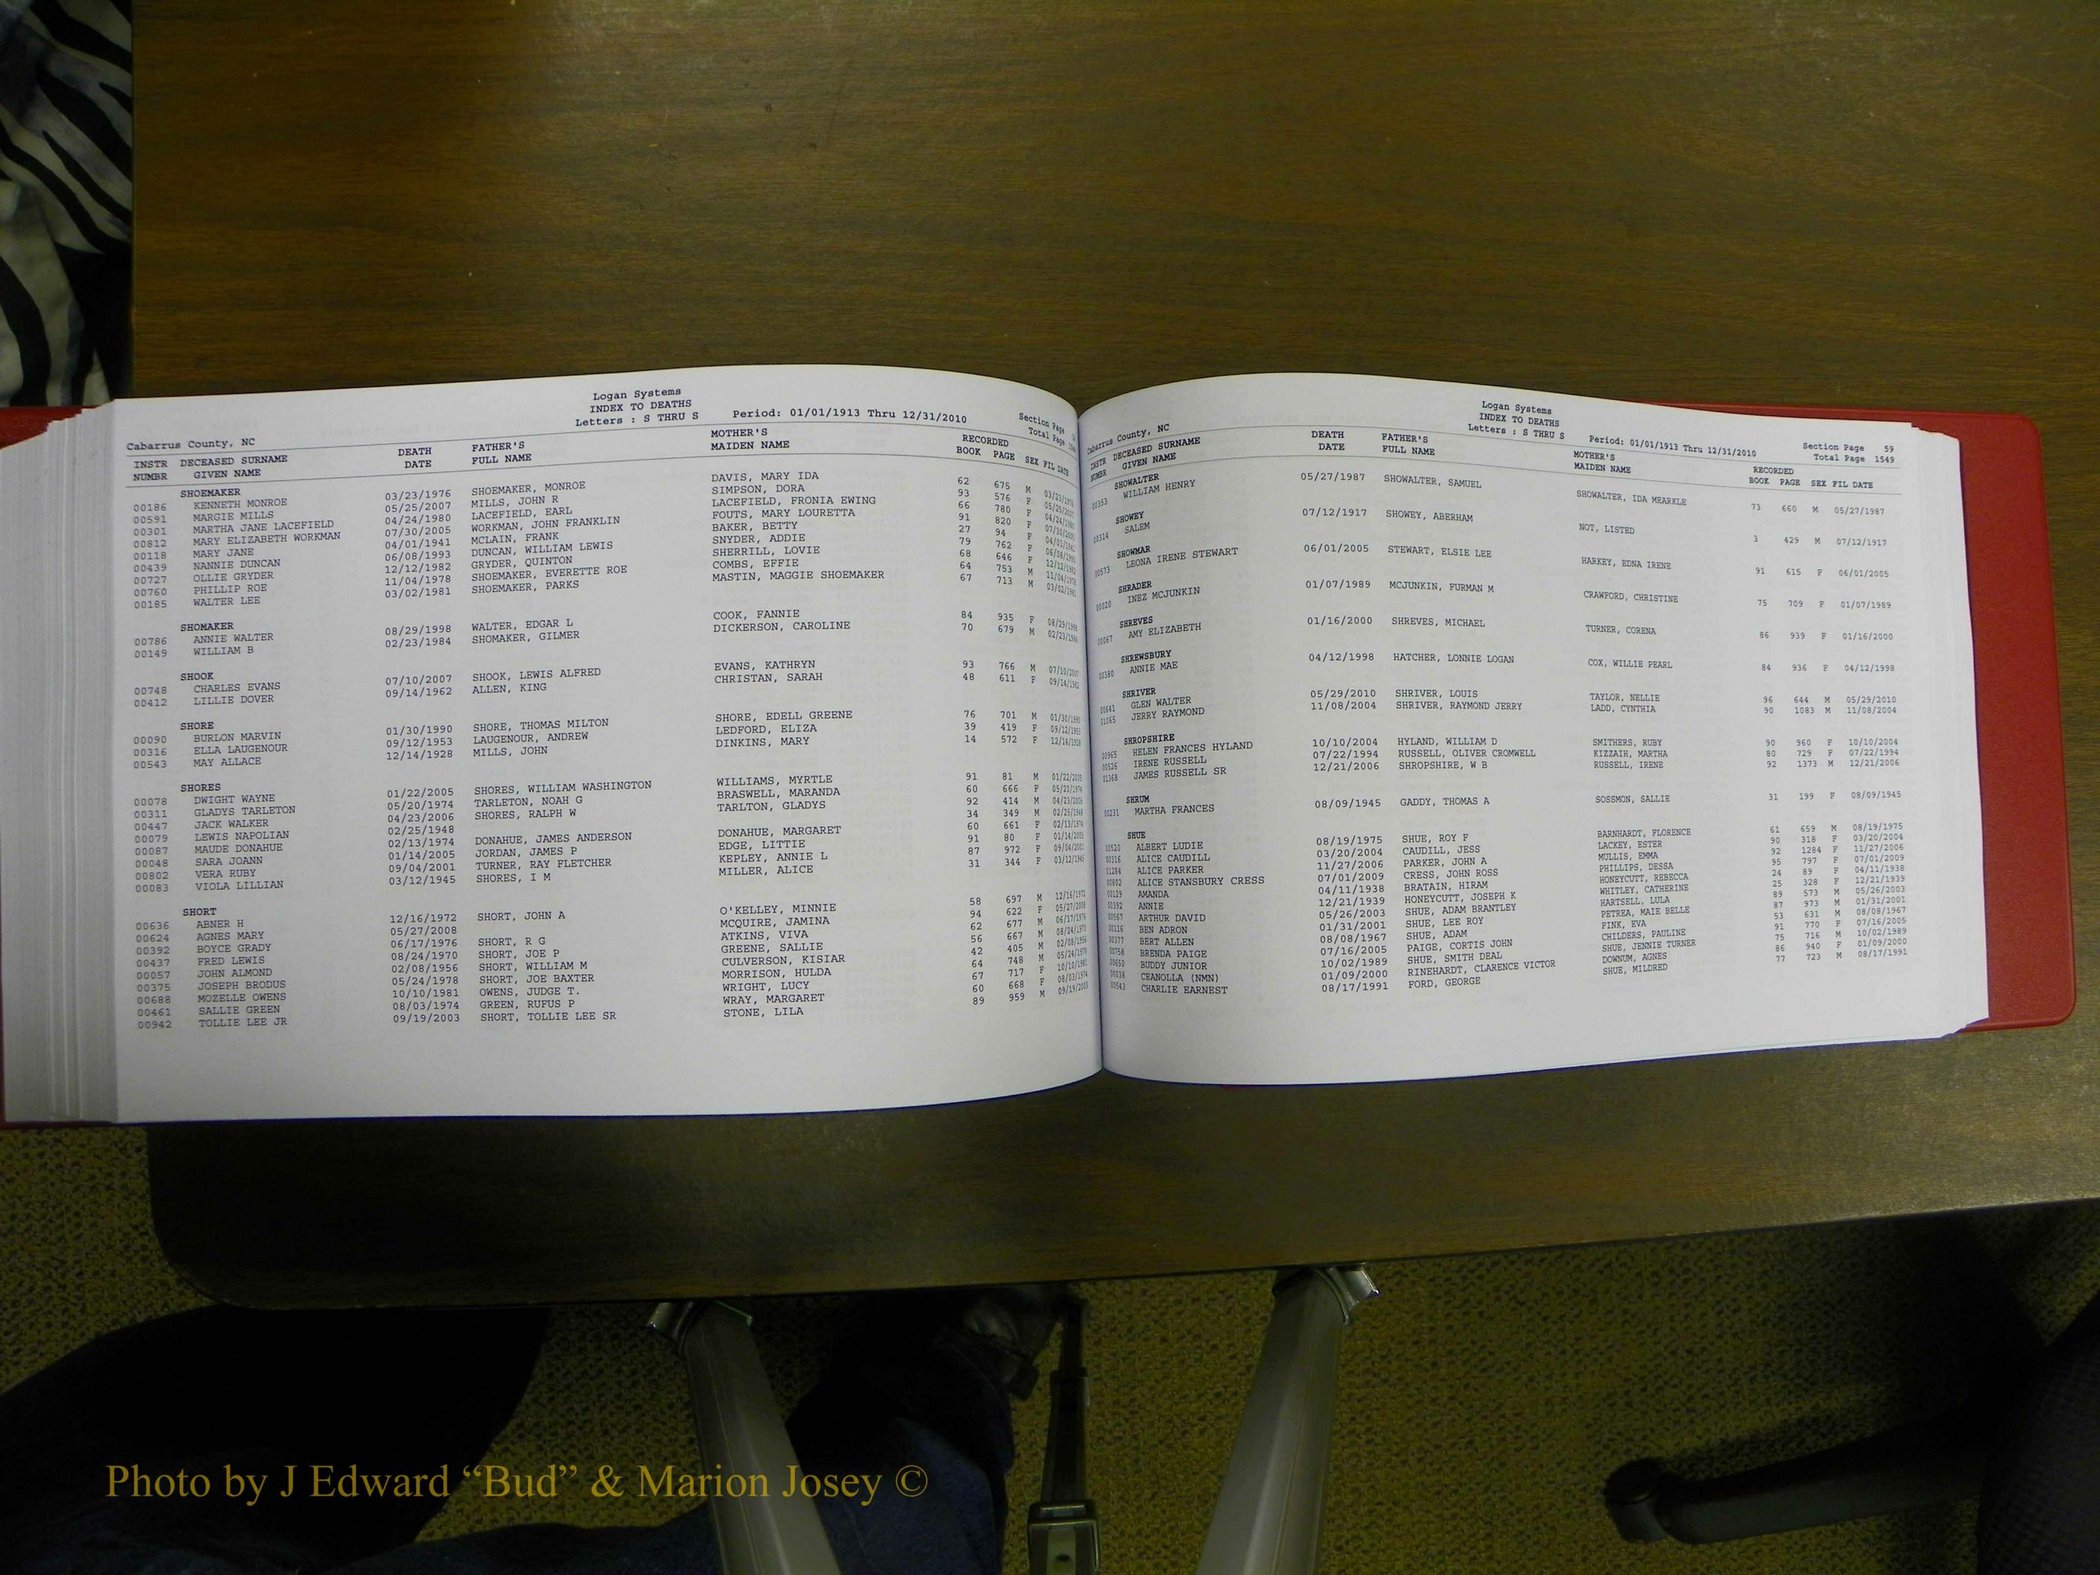 Logan Systems
INDEX TO DEATHS
Letters : S THRU S Period: 01/01/1913 Thru 12/31/2010
Cabarrus County, NC Section Page
Total Page
INSTR DECEASED SURNAME DEATH FATHER'S MOTHER'S RECORDED
NUMBR GIVEN NAME DATE FULL NAME MAIDEN NAME BOOK PAGE SEX FIL DATE
SHOEMAKER
00186 KENNETH MONROE 03/23/1976 SHOEMAKER, MONROE DAVIS, MARY IDA 62 675 M 03/23/1976
00591 MARGIE MILLS 05/25/2007 MILLS, JOHN R SIMPSON, DORA 93 576 F 05/25/2007
00301 MARTHA JANE LACEFIELD 04/24/1980 LACEFIELD, EARL LACEFIELD, FRONIA EWING 66 780 F 04/24/1980
00812 MARY ELIZABETH WORKMAN 07/30/2005 WORKMAN, JOHN FRANKLIN FOUTS, MARY LOURETTA 91 820 F 07/30/2005
00118 MARY JANE 04/01/1941 MCLAIN, FRANK BAKER, BETTY 27 94 F 04/01/1941
00439 NANNIE DUNCAN 06/08/1993 DUNCAN, WILLIAM LEWIS SNYDER, ADDIE 79 762 F 06/08/1993
00727 OLLIE GRYDER 12/12/1982 GRYDER, QUINTON SHERRILL, LOVIE 68 646 F 12/12/1982
00760 PHILLIP ROE 11/04/1978 SHOEMAKER, EVERETTE ROE COMBS, EFFIE 64 753 M 11/04/1978
00185 WALTER LEE 03/02/1981 SHOEMAKER, PARKS MASTIN, MAGGIE SHOEMAKER 67 713 M 03/02/1981
SHOMAKER
00786 ANNIE WALTER 08/29/1998 WALTER, EDGAR L COOK, FANNIE 84 935 F 08/29/1998
00149 WILLIAM B 02/23/1984 SHOMAKER, GILMER DICKERSON, CAROLINE 70 679 M 02/23/1984
SHOOK
00748 CHARLES EVANS 07/10/2007 SHOOK, LEWIS ALFRED EVANS, KATHRYN 93 766 M 07/10/2007
00412 LILLIE DOVER 09/14/1962 ALLEN, KING CHRISTAN, SARAH 48 611 F 09/14/1962
SHORE
00090 BURLON MARVIN 01/30/1990 SHORE, THOMAS MILTON SHORE, EDELL GREENE 76 701 M 01/30/1990
00316 ELLA LAUGENOUR 09/12/1953 LAUGENOUR, ANDREW LEDFORD, ELIZA 39 419 F 09/12/1953
00543 MAY ALLACE 12/14/1928 MILLS, JOHN DINKINS, MARY 14 572 F 12/14/1928
SHORES
00078 DWIGHT WAYNE 01/22/2005 SHORES, WILLIAM WASHINGTON WILLIAMS, MYRTLE 91 81 M 01/22/2005
00311 GLADYS TARLETON 05/20/1974 TARLETON, NOAH G BRASWELL, MARANDA 60 666 F 05/20/1974
00447 JACK WALKER 04/23/2006 SHORES, RALPH W TARLTON, GLADYS 92 414 M 04/23/2006
00079 LEWIS NAPOLIAN 02/25/1948 34 349 M 02/25/1948
00087 MAUDE DONAHUE 02/13/1974 DONAHUE, JAMES ANDERSON DONAHUE, MARGARET 60 661 F 02/13/1974
00048 SARA JOANN 01/14/2005 JORDAN, JAMES P EDGE, LITTIE 91 80 F 01/14/2005
00802 VERA RUBY 09/04/2001 TURNER, RAY FLETCHER KEPLEY, ANNIE L 87 972 F 09/04/2001
00083 VIOLA LILLIAN 03/12/1945 SHORES, I M MILLER, ALICE 31 344 F 03/12/1945
SHORT
00636 ABNER H 12/16/1972 SHORT, JOHN A O'KELLEY, MINNIE 58 697 M 12/16/1972
00624 AGNES MARY 05/27/2008 MCQUIRE, JAMINA 94 622 F 05/27/2008
00392 BOYCE GRADY 06/17/1976 SHORT, R G ATKINS, VIVA 62 677 M 06/17/1976
00437 FRED LEWIS 08/24/1970 SHORT, JOE P GREENE, SALLIE 56 667 M 08/24/1970
00057 JOHN ALMOND 02/08/1956 SHORT, WILLIAM M CULVERSON, KISIAR 42 405 M 02/08/1956
00375 JOSEPH BRODUS 05/24/1978 SHORT, JOE BAXTER MORRISON, HULDA 64 748 M 05/24/1978
00688 MOZELLE OWENS 10/10/1981 OWENS, JUDGE T. WRIGHT, LUCY 67 717 F 10/10/1981
00461 SALLIE GREEN 08/03/1974 GREEN, RUFUS P WRAY, MARGARET 60 668 F 08/03/1974
00942 TOLLIE LEE JR 09/19/2003 SHORT, TOLLIE LEE SR STONE, LILA 89 959 M 09/19/2003
Logan Systems
INDEX TO DEATHS
Letters : S THRU S Period: 01/01/1913 Thru 12/31/2010
Cabarrus County, NC Section Page 59
Total Page 1549
INSTR DECEASED SURNAME DEATH FATHER'S MOTHER'S RECORDED
NUMBR GIVEN NAME DATE FULL NAME MAIDEN NAME BOOK PAGE SEX FIL DATE
SHOWALTER
00353 WILLIAM HENRY 05/27/1987 SHOWALTER, SAMUEL SHOWALTER, IDA MEARKLE 73 660 M 05/27/1987
SHOWEY
00314 SALEM 07/12/1917 SHOWEY, ABERHAM NOT, LISTED 3 429 M 07/12/1917
SHOWMAR
00573 LEONA IRENE STEWART 06/01/2005 STEWART, ELSIE LEE HARKEY, EDNA IRENE 91 615 F 06/01/2005
SHRADER
00020 INEZ MCJUNKIN 01/07/1989 MCJUNKIN, FURMAN M CRAWFORD, CHRISTINE 75 709 F 01/07/1989
SHREVES
00067 AMY ELIZABETH 01/16/2000 SHREVES, MICHAEL TURNER, CORENA 86 939 F 01/16/2000
SHREWSBURY
00380 ANNIE MAE 04/12/1998 HATCHER, LONNIE LOGAN COX, WILLIE PEARL 84 936 F 04/12/1998
SHRIVER
00641 GLEN WALTER 05/29/2010 SHRIVER, LOUIS TAYLOR, NELLIE 96 644 M 05/29/2010
01065 JERRY RAYMOND 11/08/2004 SHRIVER, RAYMOND JERRY LADD, CYNTHIA 90 1083 M 11/08/2004
SHROPSHIRE
00965 HELEN FRANCES HYLAND 10/10/2004 HYLAND, WILLIAM D SMITHERS, RUBY 90 960 F 10/10/2004
00526 IRENE RUSSELL 07/22/1994 RUSSELL, OLIVER CROMWELL KIZZAIH, MARTHA 80 729 F 07/22/1994
01368 JAMES RUSSELL SR 12/21/2006 SHROPSHIRE, W B RUSSELL, IRENE 92 1373 M 12/21/2006
SHRUM
00231 MARTHA FRANCES 08/09/1945 GADDY, THOMAS A SOSSMON, SALLIE 31 199 F 08/09/1945
SHUE
00520 ALBERT LUDIE 08/19/1975 SHUE, ROY F BARNHARDT, FLORENCE 61 659 M 08/19/1975
00316 ALICE CAUDILL 03/20/2004 CAUDILL, JESS LACKEY, ESTER 90 318 F 03/20/2004
01284 ALICE PARKER 11/27/2006 PARKER, JOHN A MULLIS, EMMA 92 1284 F 11/27/2006
00802 ALICE STANSBURY CRESS 07/01/2009 CRESS, JOHN ROSS PHILLIPS, DESSA 95 797 F 07/01/2009
00129 AMANDA 04/11/1938 BRATAIN, HIRAM HONEYCUTT, REBECCA 24 89 F 04/11/1938
00392 ANNIE 12/21/1939 HONEYCUTT, JOSEPH K WHITLEY, CATHERINE 25 328 F 12/21/1939
00567 ARTHUR DAVID 05/26/2003 SHUE, ADAM BRANTLEY HARTSELL, LULA 89 573 M 05/26/2003
00116 BEN ADRON 01/31/2001 SHUE, LEE ROY PETREA, MAIE BELLE 87 973 M 01/31/2001
00377 BERT ALLEN 08/08/1967 SHUE, ADAM FINK, EVA 53 631 M 08/08/1967
00758 BRENDA PAIGE 07/16/2005 PAIGE, CORTIS JOHN CHILDERS, PAULINE 91 770 F 07/16/2005
00650 BUDDY JUNIOR 10/02/1989 SHUE, SMITH DEAL SHUE, JENNIE TURNER 75 716 M 10/02/1989
00038 CEANOLLA (NMN) 01/09/2000 RINEHARDT, CLARENCE VICTOR DOWNUM, AGNES 86 940 F 01/09/2000
00543 CHARLIE EARNEST 08/17/1991 FORD, GEORGE SHUE, MILDRED 77 723 M 08/17/1991
Photo by J Edward “Bud” & Marion Josey ©